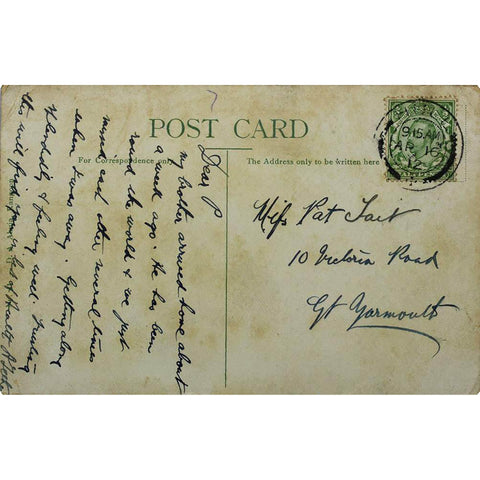 POST CARD
For Correspondence only
The Address only to be written here
Dear P
my brother arrived home about
a week ago. He has been
round the world & we just
missed each other several times
when I was away. Getting along
splendidly & feeling well. Trusting
this will find you in best of health
Miss Pat Tait
10 Victoria Road
Gt Yarmouth
9.15 AM
AP 16
12